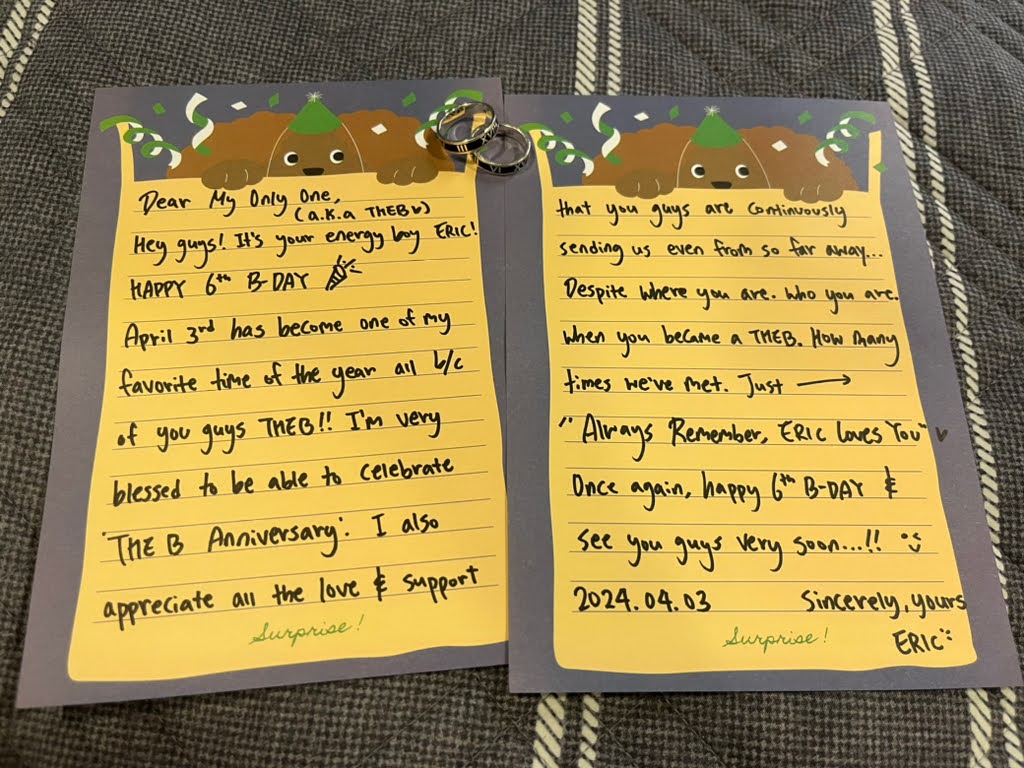 Dear My Only One,
(a.k.a THEB♥)
Hey guys! It's your energy boy ERIC!
HAPPY 6th B-DAY
April 3rd has become one of my
favorite time of the year all b/c
of you guys THEB!! I'm very
blessed to be able to celebrate
'THE B Anniversary'. I also
appreciate all the love & support
Surprise!
that you guys are continuously
sending us even from so far away...
Despite where you are. Who you are.
When you became a THEB. How many
times we've met. Just →
"Always Remember, ERIC Loves You" ♥
Once again, happy 6th B-DAY &
see you guys very soon...!!
2024.04.03 Sincerely, yours
ERIC
Surprise!